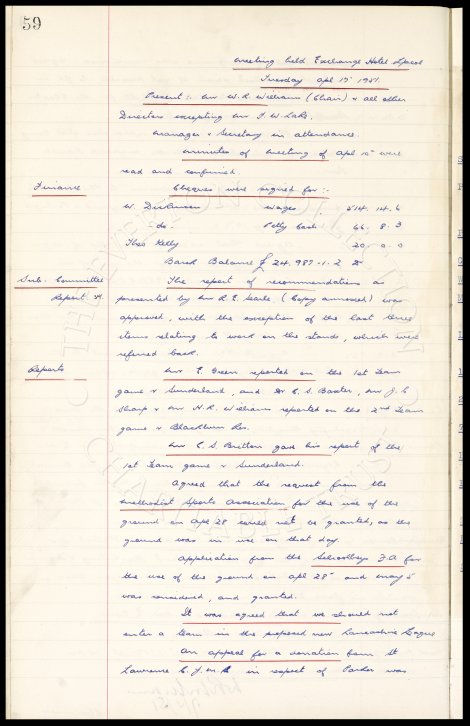 59
Meeting held Exchange Hotel Lpool
Tuesday Apl 17th 1951.
Present:- Mr W. R. Williams (Chair) & all other
Directors excepting Mr T. W. Lake.
Manager & Secretary in attendance.
Minutes of Meeting of Apl 10th were
read and confirmed.
Finance Cheques were signed for:-
W. Dickinson Wages 514. 14. 6
- do - Petty Cash 66. 8. 3
Theo Kelly 20. 0. 0
Bank Balance £24.987-1-2
Sub. Committee The report of recommendations as
Report presented by Mr R. E. Searle (Copy annexed) was
approved, with the exception of the last three
items relating to work on the stands, which were
referred back.
Reports Mr E. Green reported on the 1st Team
game v Sunderland, and Dr C. S. Baxter, Mr J. C.
Sharp & Mr H. R. Williams reported on the 2nd Team
game v Blackburn Res.
Mr C. S. Britton gave his report of the
1st Team game v Sunderland.
Agreed that the request from the
Methodist Sports Association for the use of the
ground on Apl 28 could not be granted, as the
ground was in use on that day.
Application from the Schoolboys F.A. for
the use of the ground on Apl 28th and May 5
was considered, and granted.
It was agreed that we should not
enter a team in the proposed new Lancashire League
An appeal for a donation from St
Lawrence C.F. in respect of Parker was
THE EVERTON COLLECTION
CHARITABLE TRUST